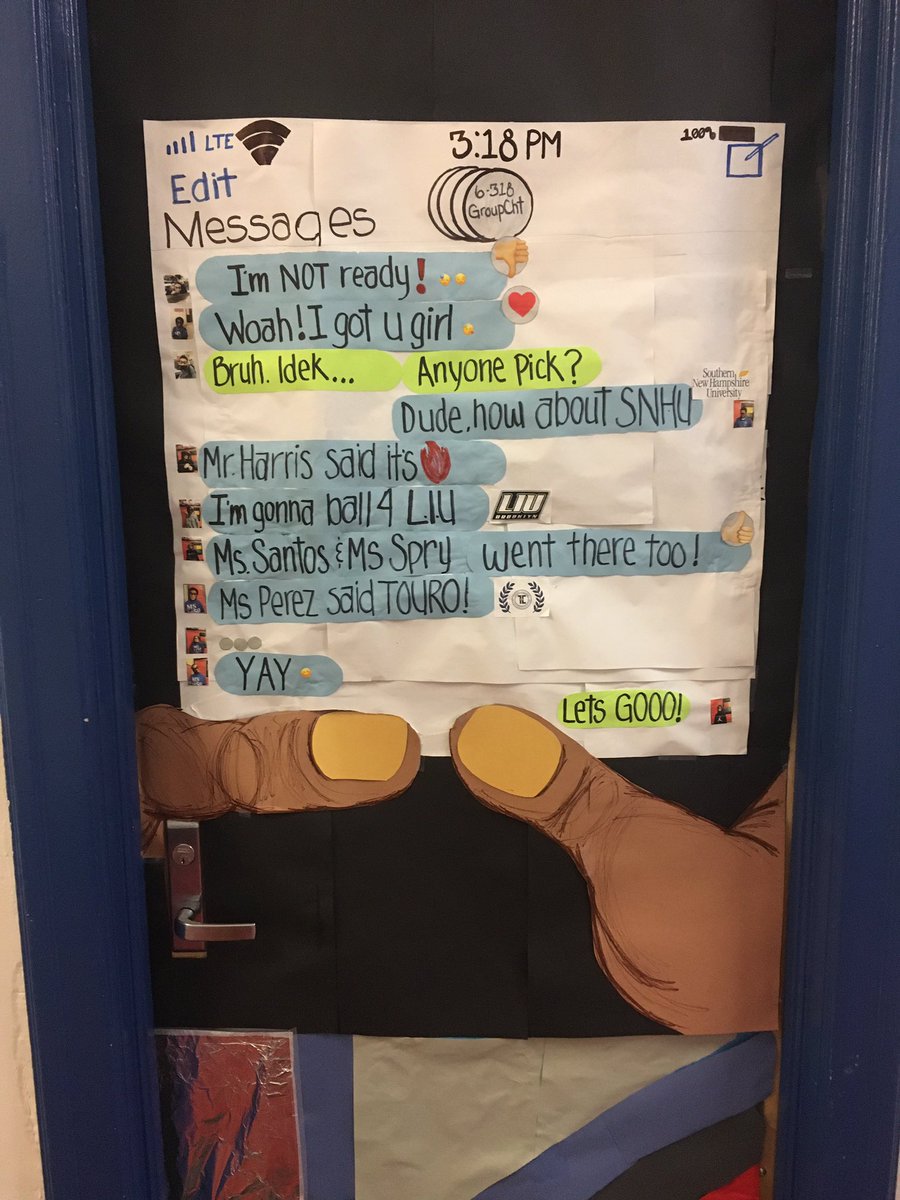 LTE 3:18 PM 100%
Edit
6-318
GroupCht
Messages
I'm NOT ready!
Woah! I got u girl
Bruh. Idek... Anyone Pick?
Southern
New Hampshire
University
Dude, how about SNHU
Mr. Harris said it's
I'm gonna ball 4 LIU
LIU
BROOKLYN
Ms. Santos & Ms Spry went there too!
Ms Perez said TOURO!
YAY
Lets GOOO!